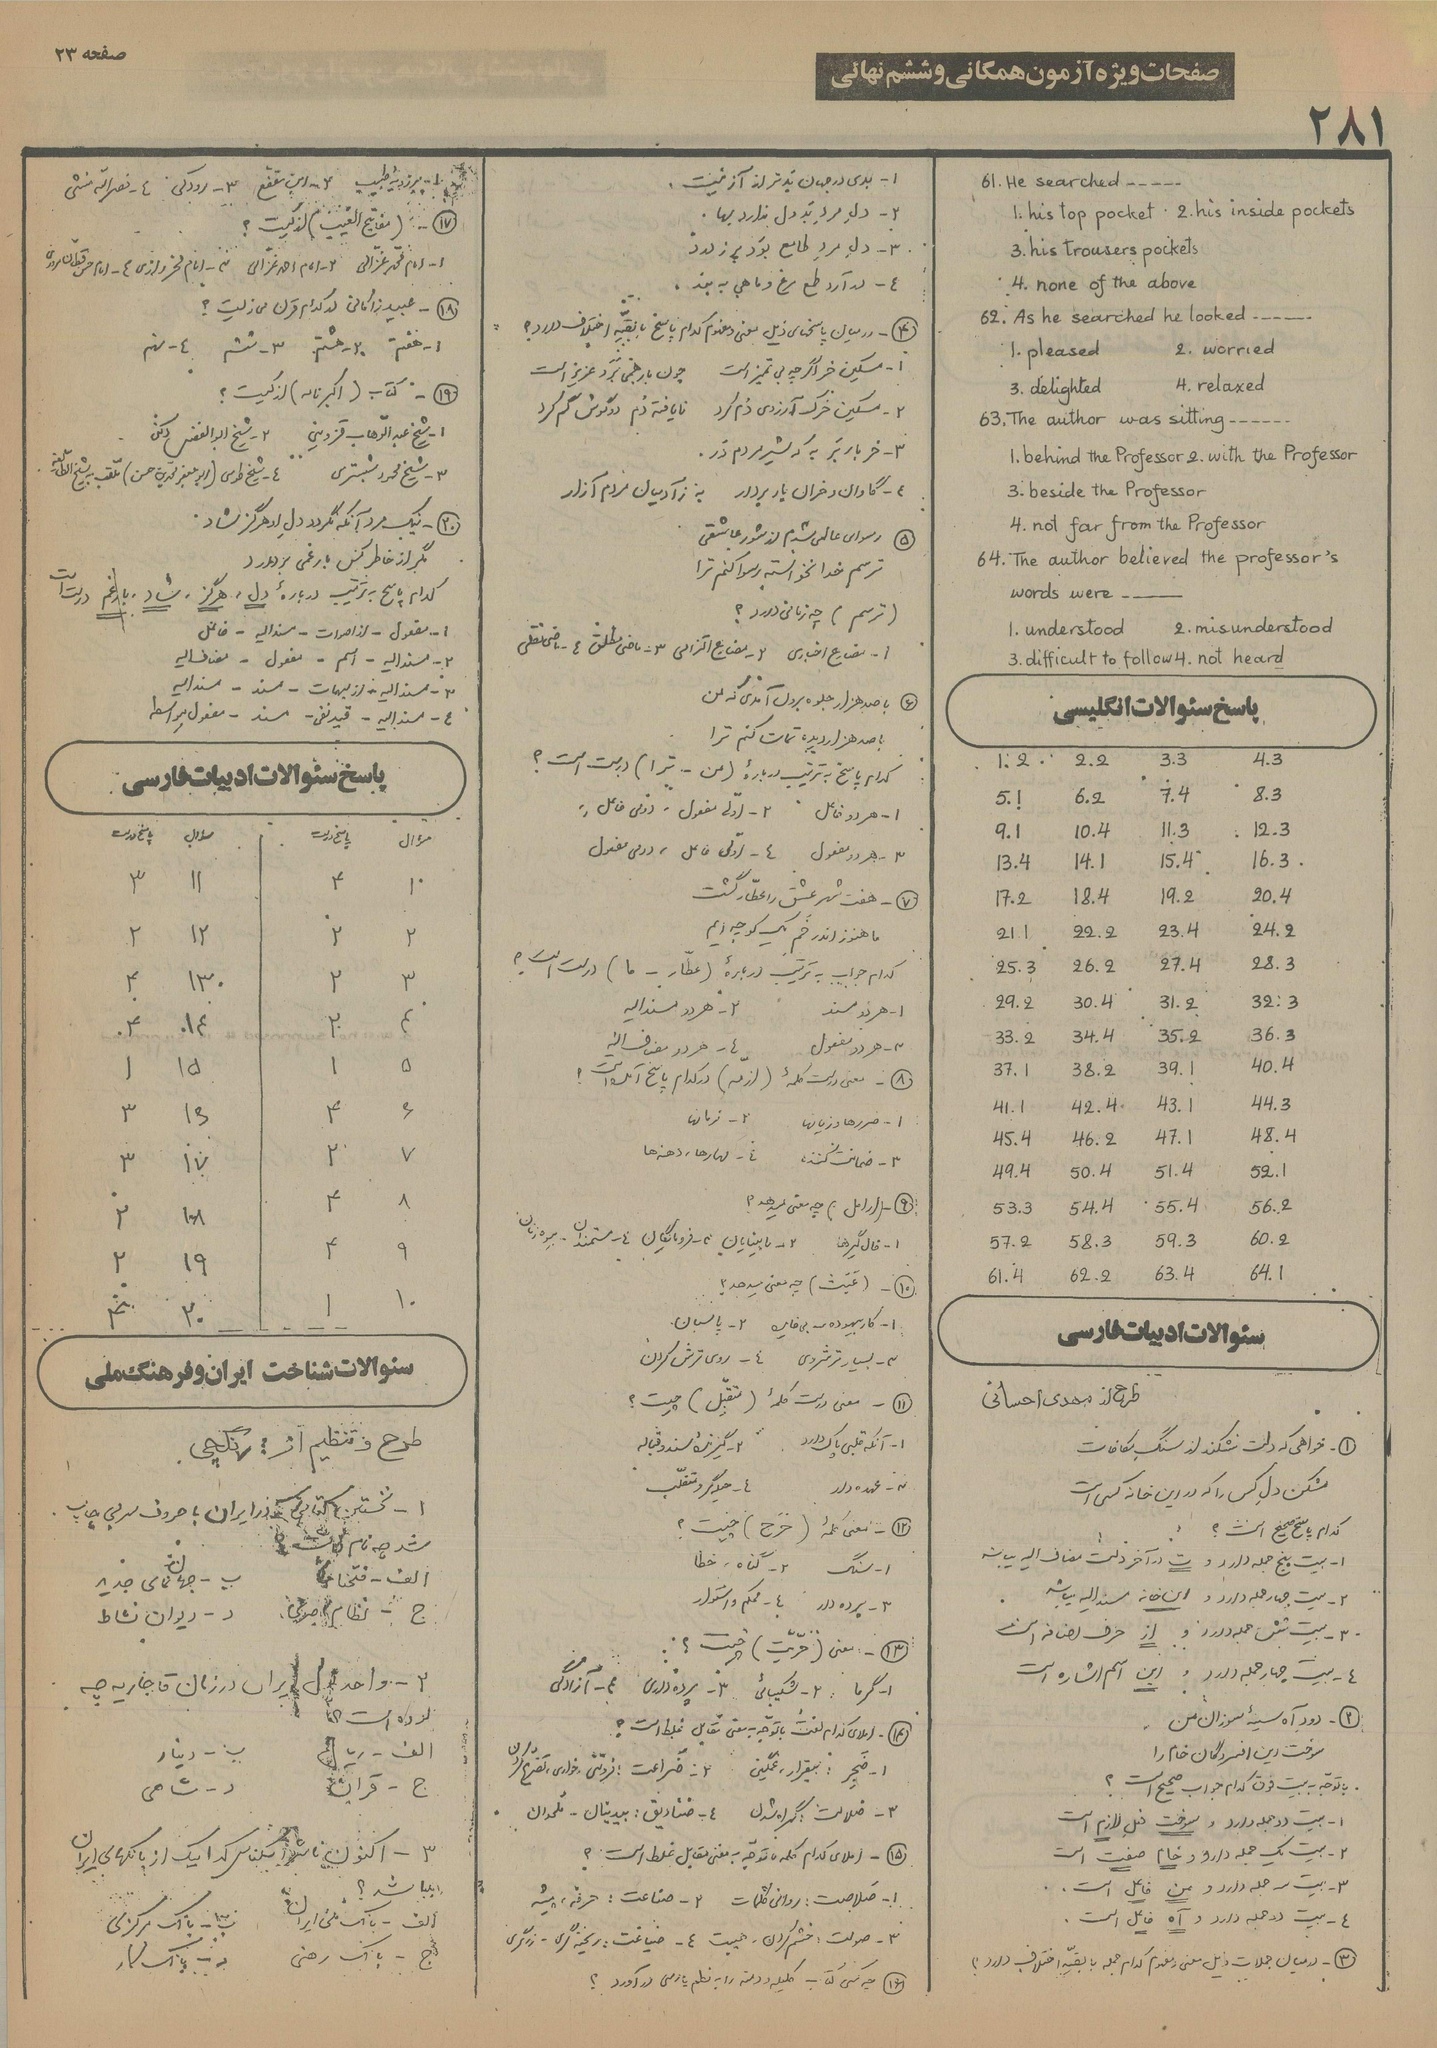 صفحه ۲۳
صفحات ویژه آزمون همگانی و ششم نهائی
۲۸۱
61. He searched -----
1. his top pocket 2. his inside pockets
3. his trousers pockets
4. none of the above
62. As he searched he looked ------
1. pleased 2. worried
3. delighted 4. relaxed
63. The author was sitting ------
1. behind the Professor 2. with the Professor
3. beside the Professor
4. not far from the Professor
64. The author believed the professor's
words were ------
1. understood 2. misunderstood
3. difficult to follow 4. not heard
پاسخ سئوالات انگلیسی
1.2 2.2 3.3 4.3
5.1 6.2 7.4 8.3
9.1 10.4 11.3 12.3
13.4 14.1 15.4 16.3
17.2 18.4 19.2 20.4
21.1 22.2 23.4 24.2
25.3 26.2 27.4 28.3
29.2 30.4 31.2 32.3
33.2 34.4 35.2 36.3
37.1 38.2 39.1 40.4
41.1 42.4 43.1 44.3
45.4 46.2 47.1 48.4
49.4 50.4 51.4 52.1
53.3 54.4 55.4 56.2
57.2 58.3 59.3 60.2
61.4 62.2 63.4 64.1
سئوالات ادبیات فارسی
طرح از مهدی احسانی
۱- خواهی که دلت نشکند از سنگ مکافات
مشکن دل کس را که در این خانه کسی است
کدام پاسخ صحیح است؟
۱- بیت پنج جمله دارد و ت در آخر دلت مضاف الیه میباشد
۲- بیت چهار جمله دارد و این خانه مسندالیه میباشد
۳- بیت شش جمله دارد و از حرف اضافه است
٤- بیت چهار جمله دارد و این اسم اشاره است
۲- دود آه سینهٔ سوزان من
سوخت این افسردگان خام را
با توجه به بیت فوق کدام جواب صحیح است؟
۱- بیت دو جمله دارد و سوخت فعل لازم است
۲- بیت یک جمله دارد و خام صفت است
۳- بیت سه جمله دارد و من فاعل است.
٤- بیت دو جمله دارد و آه فاعل است.
۳- در میان جملات ذیل معنی و مفهوم کدام جمله با بقیه اختلاف دارد؟
۱- بدی در جهان بدتر از آز نیست.
۲- دل مرد بد دل ندارد بها.
۳- دل مرد طامع بود پر ز درد
٤- در آرد طمع مرغ و ماهی به بند.
۴- در میان پاسخهای ذیل معنی و مفهوم کدام پاسخ با بقیه اختلاف دارد؟
۱- مسکین خر اگر چه بی تمیز است چون بار همی برد عزیز است
۲- مسکین خرک آرزوی دم کرد نایافته دم دو گوش گم کرد
۳- خر باربر به که شیر مردم در.
٤- گاوان و خران بار بردار به ز آدمیان مردم آزار
۵ رسوای عالمی شدم از شور عاشقی
ترسم خدا نخواسته رسوا کنم ترا
(ترسم) چه زمانی دارد؟
۱- مضارع اخباری ۲- مضارع التزامی ۳- ماضی مطلق ٤- ماضی نقلی
۶ با صد هزار جلوه برون آمدی که من
با صد هزار دیده تماشا کنم ترا
کدام پاسخ به ترتیب دربارهٔ (من - ترا) درست است؟
۱- هر دو فاعل ۲- اولی مفعول، دومی فاعل
۳- هر دو مفعول ٤- اولی فاعل، دومی مفعول
۷- هفت شهر عشق را عطار گشت
ما هنوز اندر خم یک کوچه ایم
کدام جواب به ترتیب دربارهٔ (عطار - ما) درست است؟
۱- هر دو مسند ۲- هر دو مسندالیه
۳- هر دو مفعول ٤- هر دو مضاف الیه
۸- معنی درست کلمهٔ (ازمنه) در کدام پاسخ آمده است؟
۱- ضررها و زیانها ۲- زمانها
۳- ضمانت کننده ٤- مهارها، دهنه‌ها
۹- (ارامل) چه معنی میدهد؟
۱- فال گیرها ۲- نابینایان ۳- فرومایگان ٤- مستمندان - بیوه زنان
۱۰- (عبث) چه معنی میدهد؟
۱- کار بیهوده و بی فایده ۲- پاسبان
۳- بسیار ترشروی ٤- روی ترش کردن
۱۱- معنی درست کلمهٔ (متقبل) چیست؟
۱- آنکه قلبی پاک دارد ۲- گیرندهٔ سند و قباله
۳- عهده دار ٤- حیله گر و متقلب
۱۲- معنی کلمهٔ چیست؟
۱- سنگ ۲- گناه، خطا
۳- پرده در ٤- محکم و استوار
۱۳- معنی (حریت) چیست؟
۱- گرما ۲- شکیبائی ۳- پرده دری ۴- آزادگی
۱۴- املای کدام لغت با توجه به معنی مقابل غلط است؟
۱- ضجر: بیقرار، غمگین ۲- ضراعت: فروتنی، خواری،
۳- ضلالت: گمراه شدن ٤-
۱۵- املای کدام کلمه با توجه به معنی مقابل غلط است؟
۱- صلاصت: روانی کلمات ۲- صناعت: حرفه، پیشه
۳- صولت: خشم کردن، هیبت ٤- صیاغت: ریخته گری - زرگری
۱۶ چه کسی کتاب کلیله و دمنه را به نظم پارسی در آورد؟
۱- برزویهٔ طبیب ۲- ابن مقفع ۳- رودکی ٤- نصرالله منشی
۱۷- (مفاتیح الغیب) از کیست؟
۱- امام محمد غزالی ۲- امام احمد غزالی ۳- امام فخر رازی ۴-
۱۸- عبید زاکانی در کدام قرن می زیست؟
۱- هفتم ۲- هشتم ۳- ششم ٤- نهم
۱۹- کتاب (اکبرنامه) از کیست؟
۱- شیخ عبدالوهاب قزوینی ۲- شیخ ابوالفضل دکنی
۳- شیخ محمود شبستری ٤- شیخ طوسی (ابوجعفر محمد بن حسن) ملقب به شیخ الطائفه
۲۰- نیک مرد آنکه نگردد دل او هرگز شاد
مگر از خاطر کس بار غمی بردارد
کدام پاسخ به ترتیب دربارهٔ دل، هرگز، شاد، بار غم درست است
۱- مفعول - از اصوات - مسندالیه - فاعل
۲- مسندالیه - اسم - مفعول - مضاف الیه
۳- مسندالیه - از مبهمات - مسند - مسندالیه
٤- مسندالیه - قید نفی - مسند - مفعول بیواسطه
پاسخ سئوالات ادبیات فارسی
سؤال پاسخ درست سؤال پاسخ درست
۱ ۴ ۱۱ ۳
۲ ۲ ۱۲ ۲
۳ ۲ ۱۳ ۴
۴ ۲ ۱٤ ۴
۵ ۱ ۱۵ ۱
۶ ۴ ۱۶ ۳
۷ ۲ ۱۷ ۳
۸ ۴ ۱۸ ۲
۹ ۴ ۱۹ ۲
۱۰ ۱ ۲۰ ۴
سئوالات شناخت ایران و فرهنگ ملی
طرح و تنظیم از:
۱- نخستین کتابی که در ایران با حروف سربی چاپ
شد چه نام داشت؟
الف- فتحنامه ب- جهان نمای جدید
ج- نظام د- دیوان نشاط
۲- واحد پول ایران در زمان قاجاریه چه
بوده است؟
الف- ریال ب- دینار
ج- قران د- شاهی
۳- اکنون ناشر اسکناس کدامیک از بانکهای ایران
میباشد؟
الف- بانک ملی ایران ب- بانک مرکزی
ج- بانک رهنی د- بانک کار